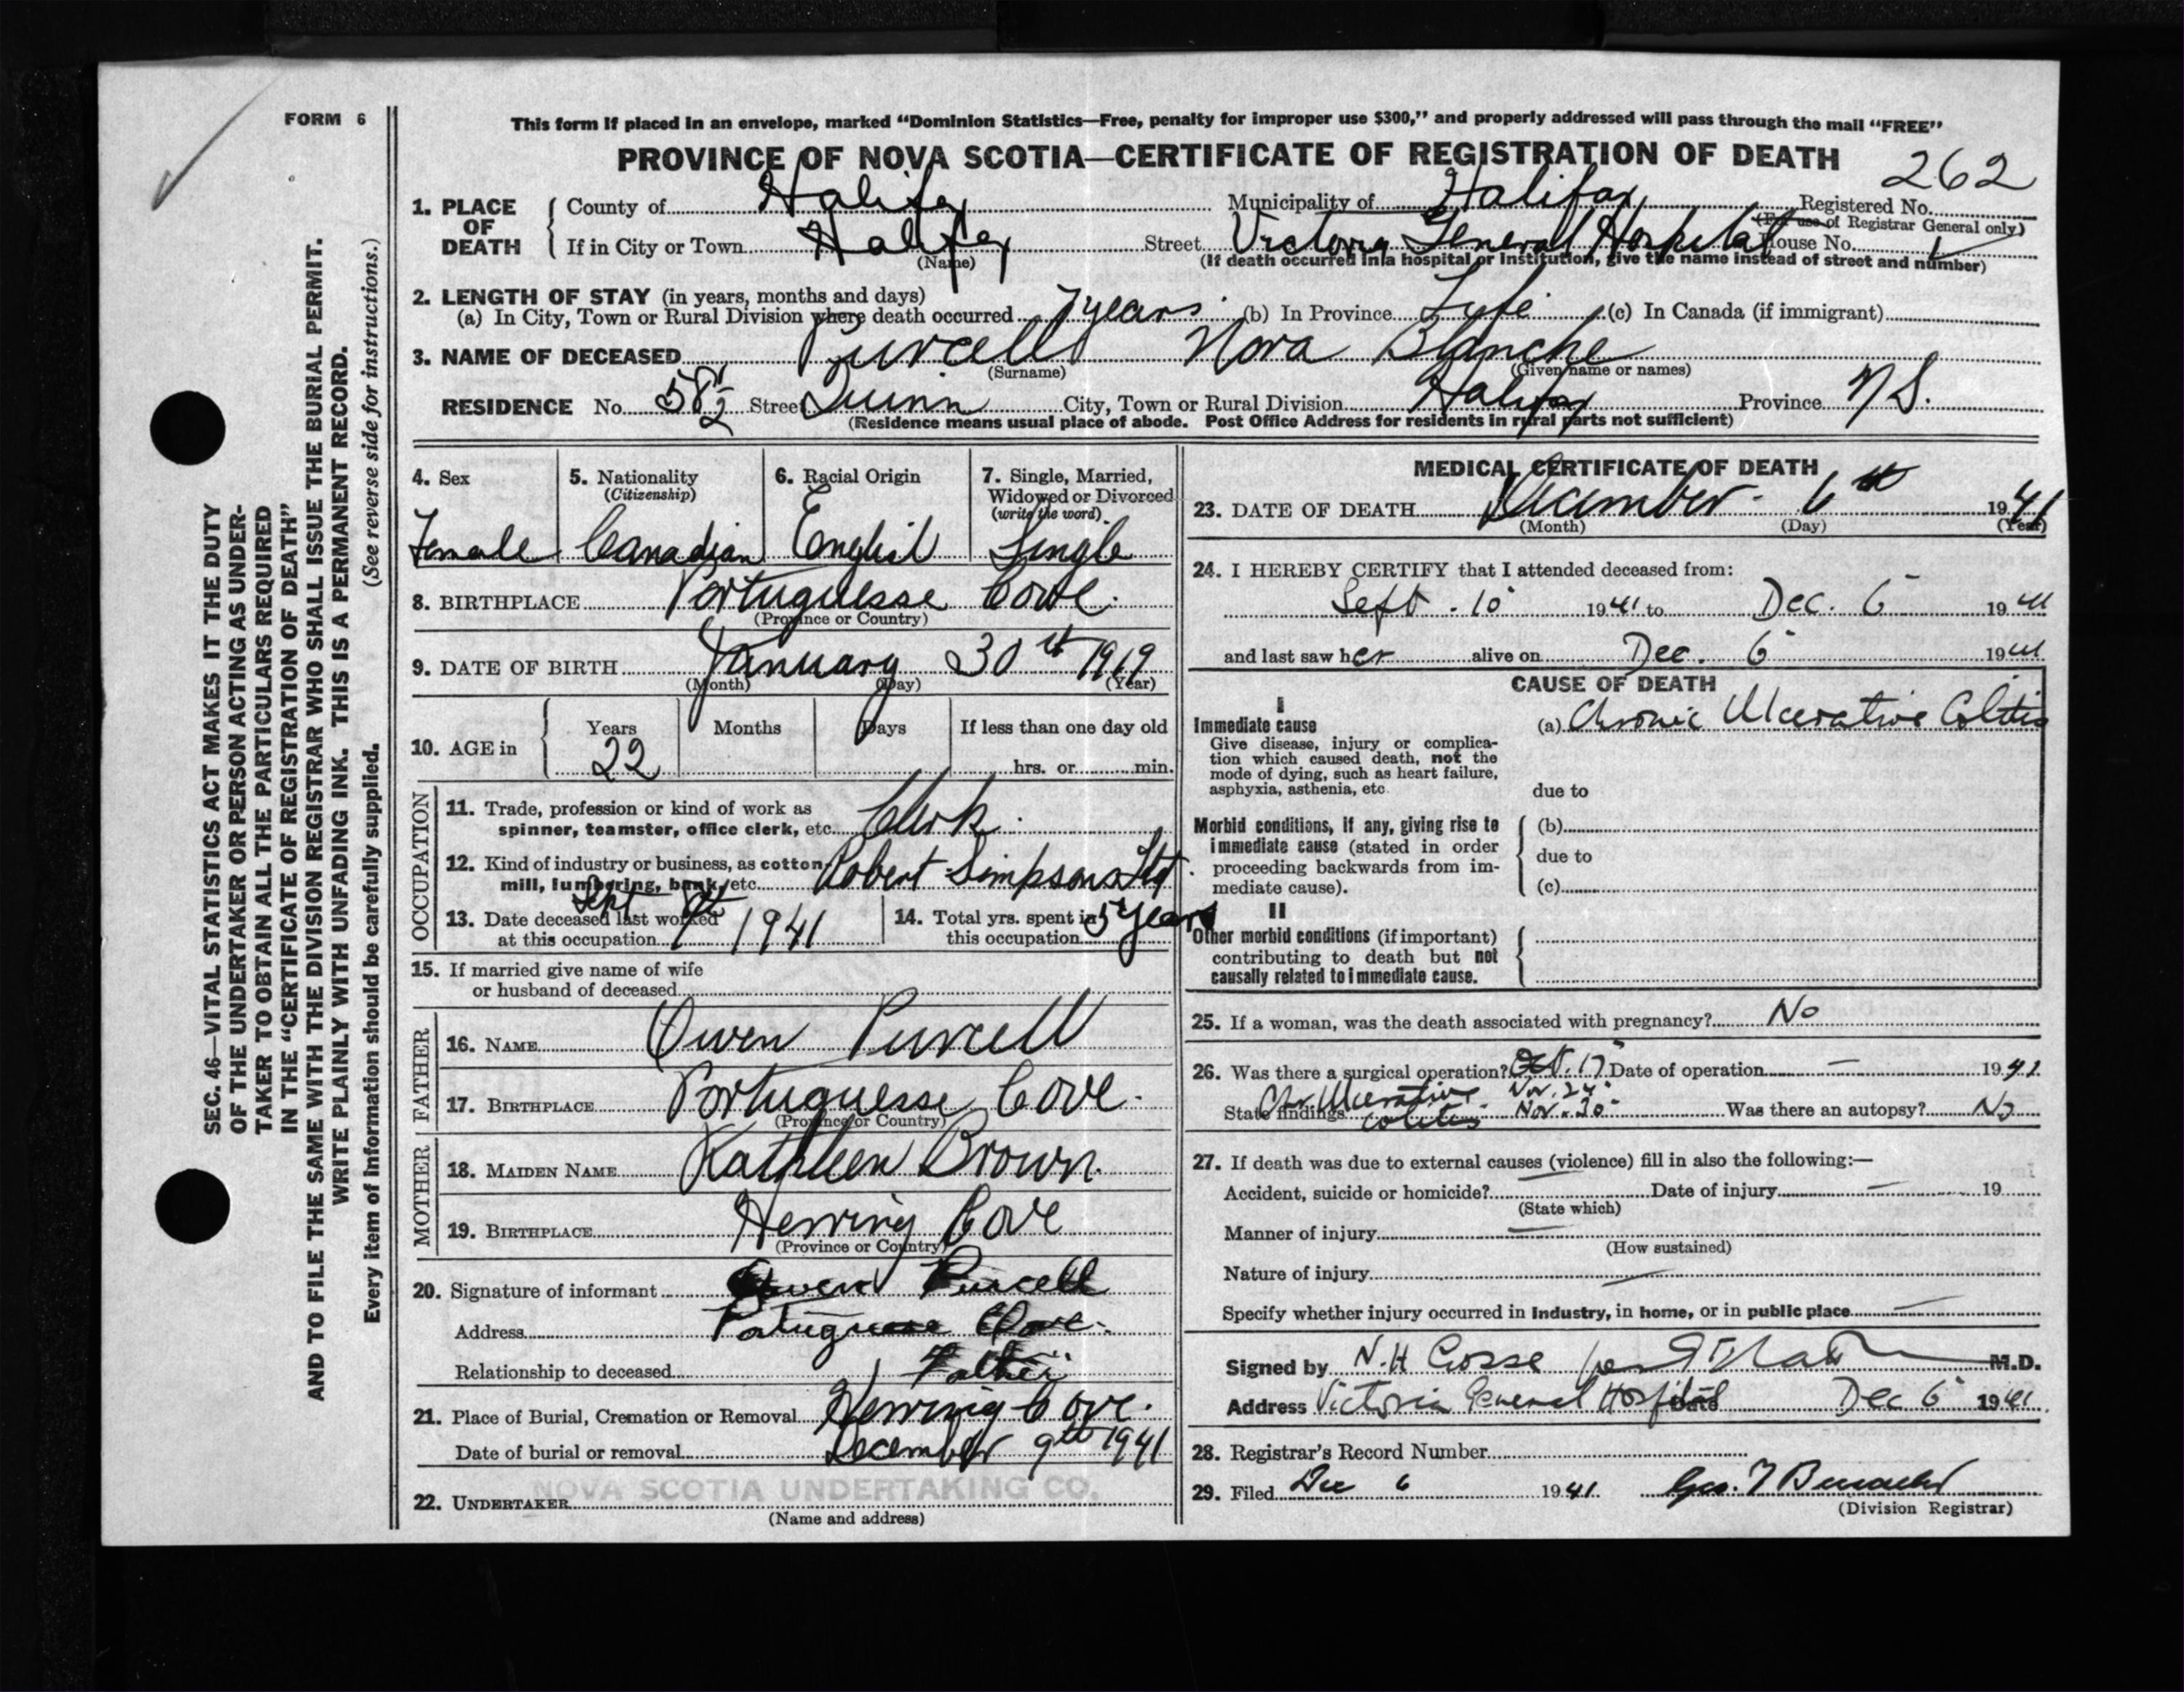 FORM 6
This form if placed in an envelope, marked “Dominion Statistics—Free, penalty for improper use $300,” and properly addressed will pass through the mail “FREE”
PROVINCE OF NOVA SCOTIA—CERTIFICATE OF REGISTRATION OF DEATH
262
1. PLACE OF DEATH
County of Halifax Municipality of Halifax Registered No.
(For use of Registrar General only)
If in City or Town Halifax Street Victoria General Hospital House No.
(Name) (If death occurred in a hospital or institution, give the name instead of street and number)
2. LENGTH OF STAY (in years, months and days)
(a) In City, Town or Rural Division where death occurred 7 years (b) In Province Lyfe (c) In Canada (if immigrant)
3. NAME OF DECEASED Purcell Nora Blanche
(Surname) (Given name or names)
RESIDENCE No. 58½ Street Quinn City, Town or Rural Division Halifax Province N.S.
(Residence means usual place of abode. Post Office Address for residents in rural parts not sufficient)
SEC. 46—VITAL STATISTICS ACT MAKES IT THE DUTY
OF THE UNDERTAKER OR PERSON ACTING AS UNDER-
TAKER TO OBTAIN ALL THE PARTICULARS REQUIRED
IN THE “CERTIFICATE OF REGISTRATION OF DEATH”
AND TO FILE THE SAME WITH THE DIVISION REGISTRAR WHO SHALL ISSUE THE BURIAL PERMIT.
WRITE PLAINLY WITH UNFADING INK. THIS IS A PERMANENT RECORD.
Every item of information should be carefully supplied. (See reverse side for instructions.)
4. Sex
Female
5. Nationality
(Citizenship)
Canadian
6. Racial Origin
English
7. Single, Married,
Widowed or Divorced
(write the word)
Single
8. BIRTHPLACE Portuguesse Cove.
(Province or Country)
9. DATE OF BIRTH January 30th 1919
(Month) (Day) (Year)
10. AGE in
Years Months Days If less than one day old
22 hrs. or min.
OCCUPATION
11. Trade, profession or kind of work as
spinner, teamster, office clerk, etc. Clerk.
12. Kind of industry or business, as cotton-
mill, lumbering, bank, etc. Robert Simpsons Ltd.
13. Date deceased last worked Sept
at this occupation 1941
14. Total yrs. spent in
this occupation 5 years
15. If married give name of wife
or husband of deceased
FATHER
16. NAME Owen Purcell
17. BIRTHPLACE Portuguesse Cove.
(Province or Country)
MOTHER
18. MAIDEN NAME Kathleen Brown.
19. BIRTHPLACE Herring Cove
(Province or Country)
20. Signature of informant Owen Purcell
Address Portuguese Cove.
Relationship to deceased Father
21. Place of Burial, Cremation or Removal Herring Cove.
Date of burial or removal December 9th 1941
22. UNDERTAKER NOVA SCOTIA UNDERTAKING CO.
(Name and address)
MEDICAL CERTIFICATE OF DEATH
23. DATE OF DEATH December 6th 1941
(Month) (Day) (Year)
24. I HEREBY CERTIFY that I attended deceased from:
Sept. 10 1941 to Dec. 6 1941
and last saw her alive on Dec. 6 1941
CAUSE OF DEATH
I
Immediate cause (a) Chronic Ulcerative Colitis
Give disease, injury or complica-
tion which caused death, not the
mode of dying, such as heart failure,
asphyxia, asthenia, etc. due to
Morbid conditions, if any, giving rise to (b)
immediate cause (stated in order
proceeding backwards from im- due to
mediate cause). (c)
II
Other morbid conditions (if important)
contributing to death but not
causally related to immediate cause.
25. If a woman, was the death associated with pregnancy? No
26. Was there a surgical operation? Oct. 17 Date of operation — 1941
Nov. 24
State findings Chr Ulcerative colitis Nov. 30 Was there an autopsy? No
27. If death was due to external causes (violence) fill in also the following:—
Accident, suicide or homicide? Date of injury — 19
(State which)
Manner of injury —
(How sustained)
Nature of injury —
Specify whether injury occurred in industry, in home, or in public place —
Signed by N.H Gosse per M.D.
Address Victoria General Hospital Date Dec 6 1941
28. Registrar's Record Number
29. Filed Dec 6 1941 Geo.
(Division Registrar)